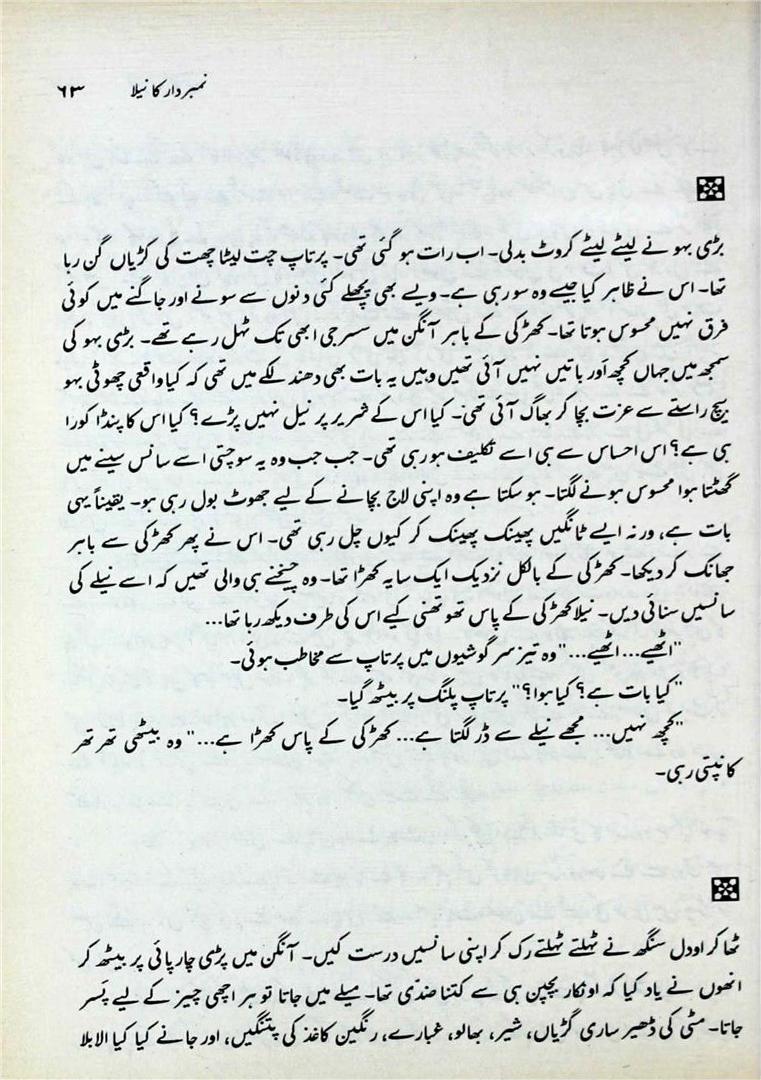 نمبردار کا نیلا ۶۳
بڑی بہو نے لیٹے لیٹے کروٹ بدلی۔ اب رات ہو گئی تھی۔ پرتاپ چت لیٹا چھت کی کڑیاں گن رہا
تھا۔ اس نے ظاہر کیا جیسے وہ سو رہی ہے۔ ویسے بھی پچھلے کئی دنوں سے سونے اور جاگنے میں کوئی
فرق نہیں محسوس ہوتا تھا۔ کھڑکی کے باہر آنگن میں سسر جی ابھی تک ٹہل رہے تھے۔ بڑی بہو کی
سمجھ میں جہاں کچھ اور باتیں نہیں آئی تھیں وہیں یہ بات بھی دھندلکے میں تھی کہ کیا واقعی چھوٹی بہو
بیچ راستے سے عزت بچا کر بھاگ آئی تھی۔ کیا اس کے شریر پر نیل نہیں پڑے؟ کیا اس کا پنڈا کورا
ہی ہے؟ اس احساس سے ہی اسے تکلیف ہو رہی تھی۔ جب جب وہ یہ سوچتی اسے سانس سینے میں
گھٹتا ہوا محسوس ہونے لگتا۔ ہو سکتا ہے وہ اپنی لاج بچانے کے لیے جھوٹ بول رہی ہو۔ یقیناً یہی
بات ہے، ورنہ ایسے ٹانگیں پھینک پھینک کر کیوں چل رہی تھی۔ اس نے پھر کھڑکی سے باہر
جھانک کر دیکھا۔ کھڑکی کے بالکل نزدیک ایک سایہ کھڑا تھا۔ وہ چیخنے ہی والی تھیں کہ اسے نیلے کی
سانسیں سنائی دیں۔ نیلا کھڑکی کے پاس تھوتھنی کیے اس کی طرف دیکھ رہا تھا...
"اٹھیے... اٹھیے..." وہ تیز سرگوشیوں میں پرتاپ سے مخاطب ہوئی۔
"کیا بات ہے؟ کیا ہوا؟" پرتاپ پلنگ پر بیٹھ گیا۔
"کچھ نہیں... مجھے نیلے سے ڈر لگتا ہے... کھڑکی کے پاس کھڑا ہے..." وہ بیٹھی تھر تھر
کانپتی رہی۔
ٹھاکر اودل سنگھ نے ٹہلتے ٹہلتے رک کر اپنی سانسیں درست کیں۔ آنگن میں پڑی چارپائی پر بیٹھ کر
انھوں نے یاد کیا کہ اونکار بچپن ہی سے کتنا ضدّی تھا۔ میلے میں جاتا تو ہر اچھی چیز کے لیے پسر
جاتا۔ مٹی کی ڈھیر ساری گڑیاں، شیر، بھالو، غبارے، رنگین کاغذ کی پتنگیں، اور جانے کیا کیا الابلا